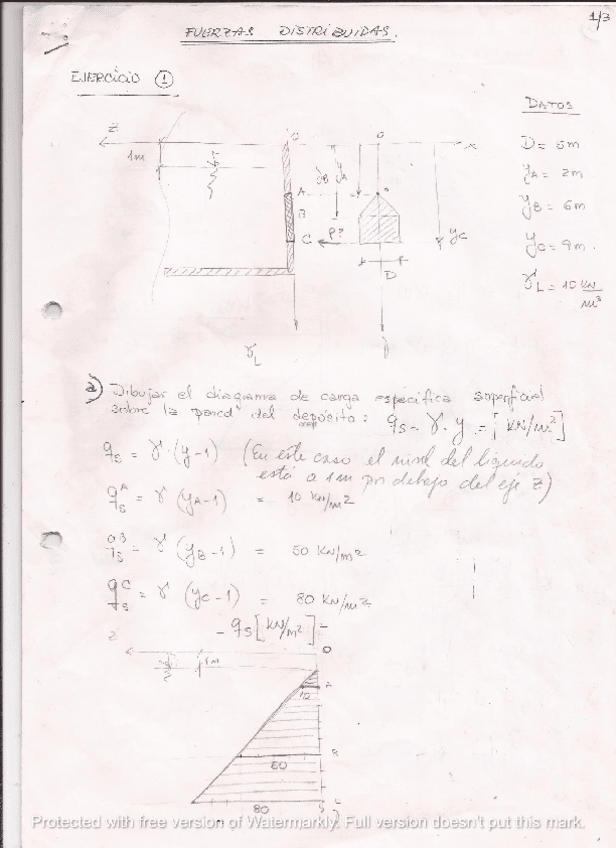 1/3
FUERZAS DISTRIBUIDAS.
EJERCICIO ①
DATOS
Z
O
O
x
1m
yB
yA
A
B
C
P?
yC
D
γL
D = 5m
yA = 2m
yB = 6m
yC = 9m.
γL = 10 KN/m³
a) Dibujar el diagrama de carga específica superficial
sobre la pared del depósito: qs = γ · y = [KN/m²]
qs = γ · (y-1) (En este caso el nivel del líquido
está a 1m por debajo del eje Z)
qsA = γ (yA-1) = 10 KN/m²
qsB = γ (yB-1) = 50 KN/m²
qsC = γ (yC-1) = 80 KN/m²
- qs [KN/m²]
Z
O
1m
A
10
B
50
80
Protected with free version of Watermarkly. Full version doesn't put this mark.